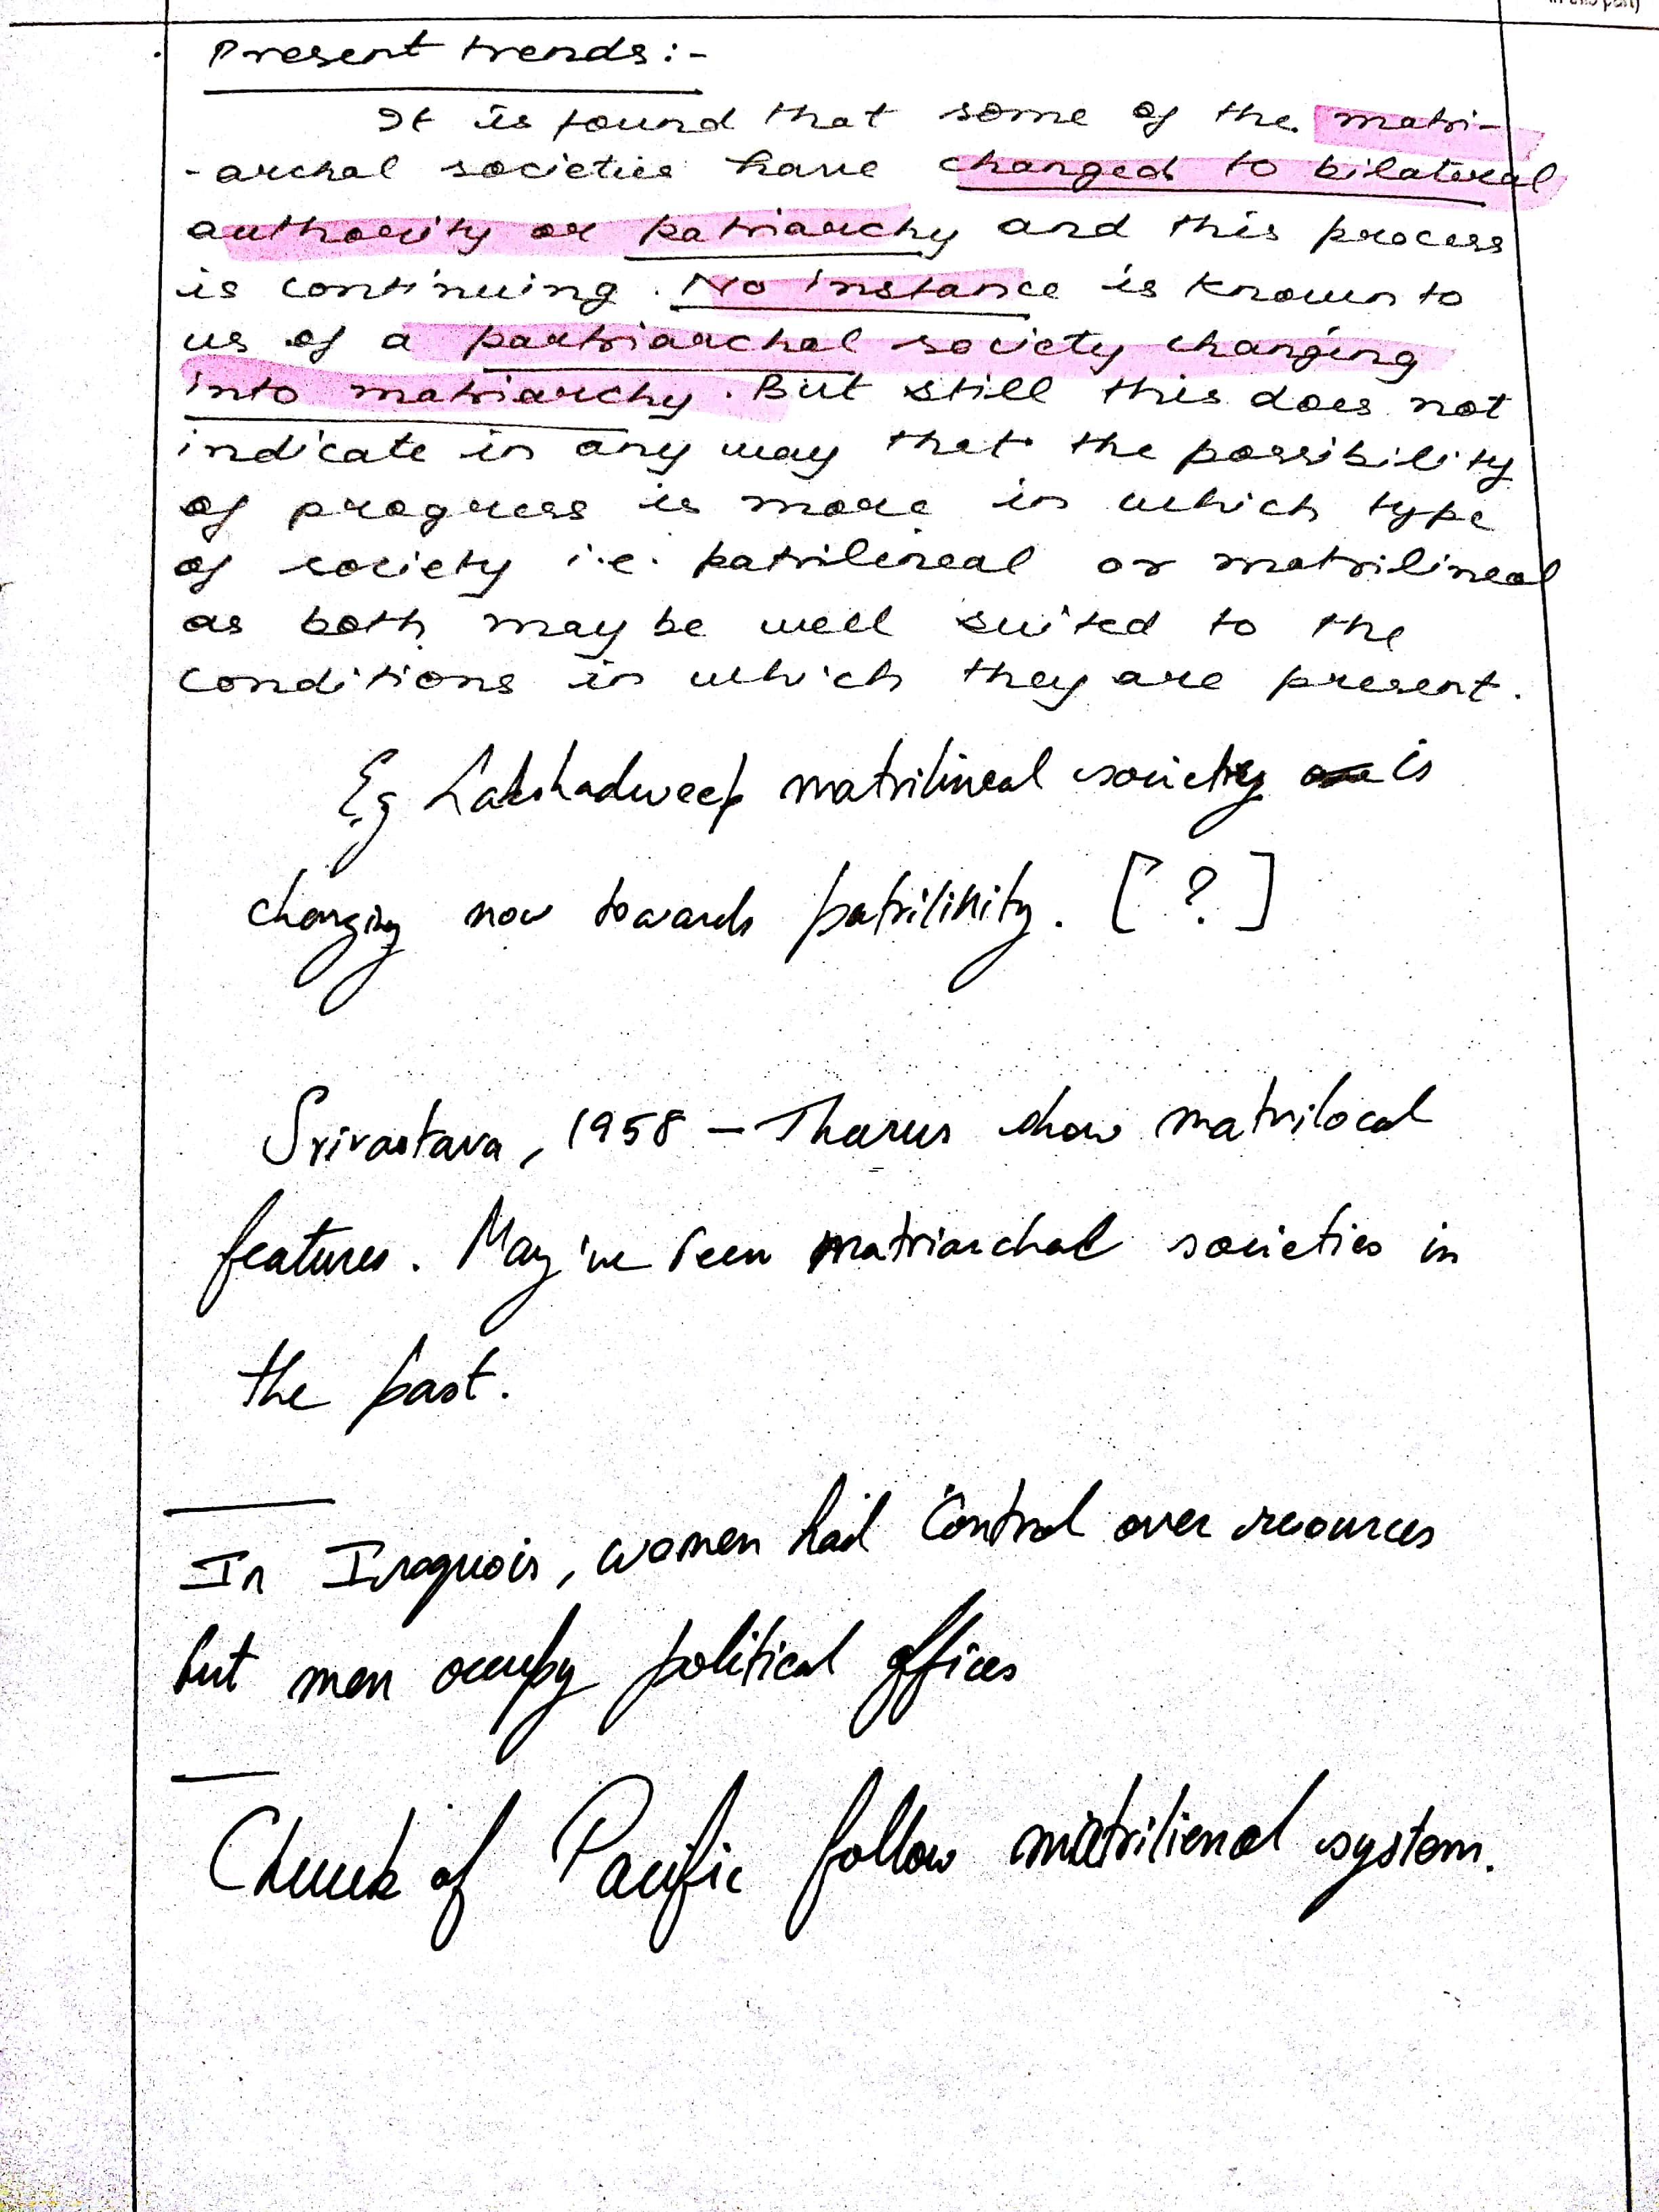 in this part)
Present trends:-
It is found that some of the matri-
-archal societies have changed to bilateral
authority or patriarchy and this process
is continuing. No instance is known to
us of a partriarchal society changing
into matriarchy. But still this does not
indicate in any way that the possibility
of progress is more in which type
of society i.e. patrilineal or matrilineal
as both may be well suited to the
conditions in which they are present.
Eg Lakshadweep matrilineal society is
changing now towards patrilinity. [ ? ]
Srivastava, 1958 - Tharus show matrilocal
features. May've been matriarchal societies in
the past.
In Iroquois, women had control over resources
but men occupy political offices
Chuuk of Pacific follow matrilienal system.